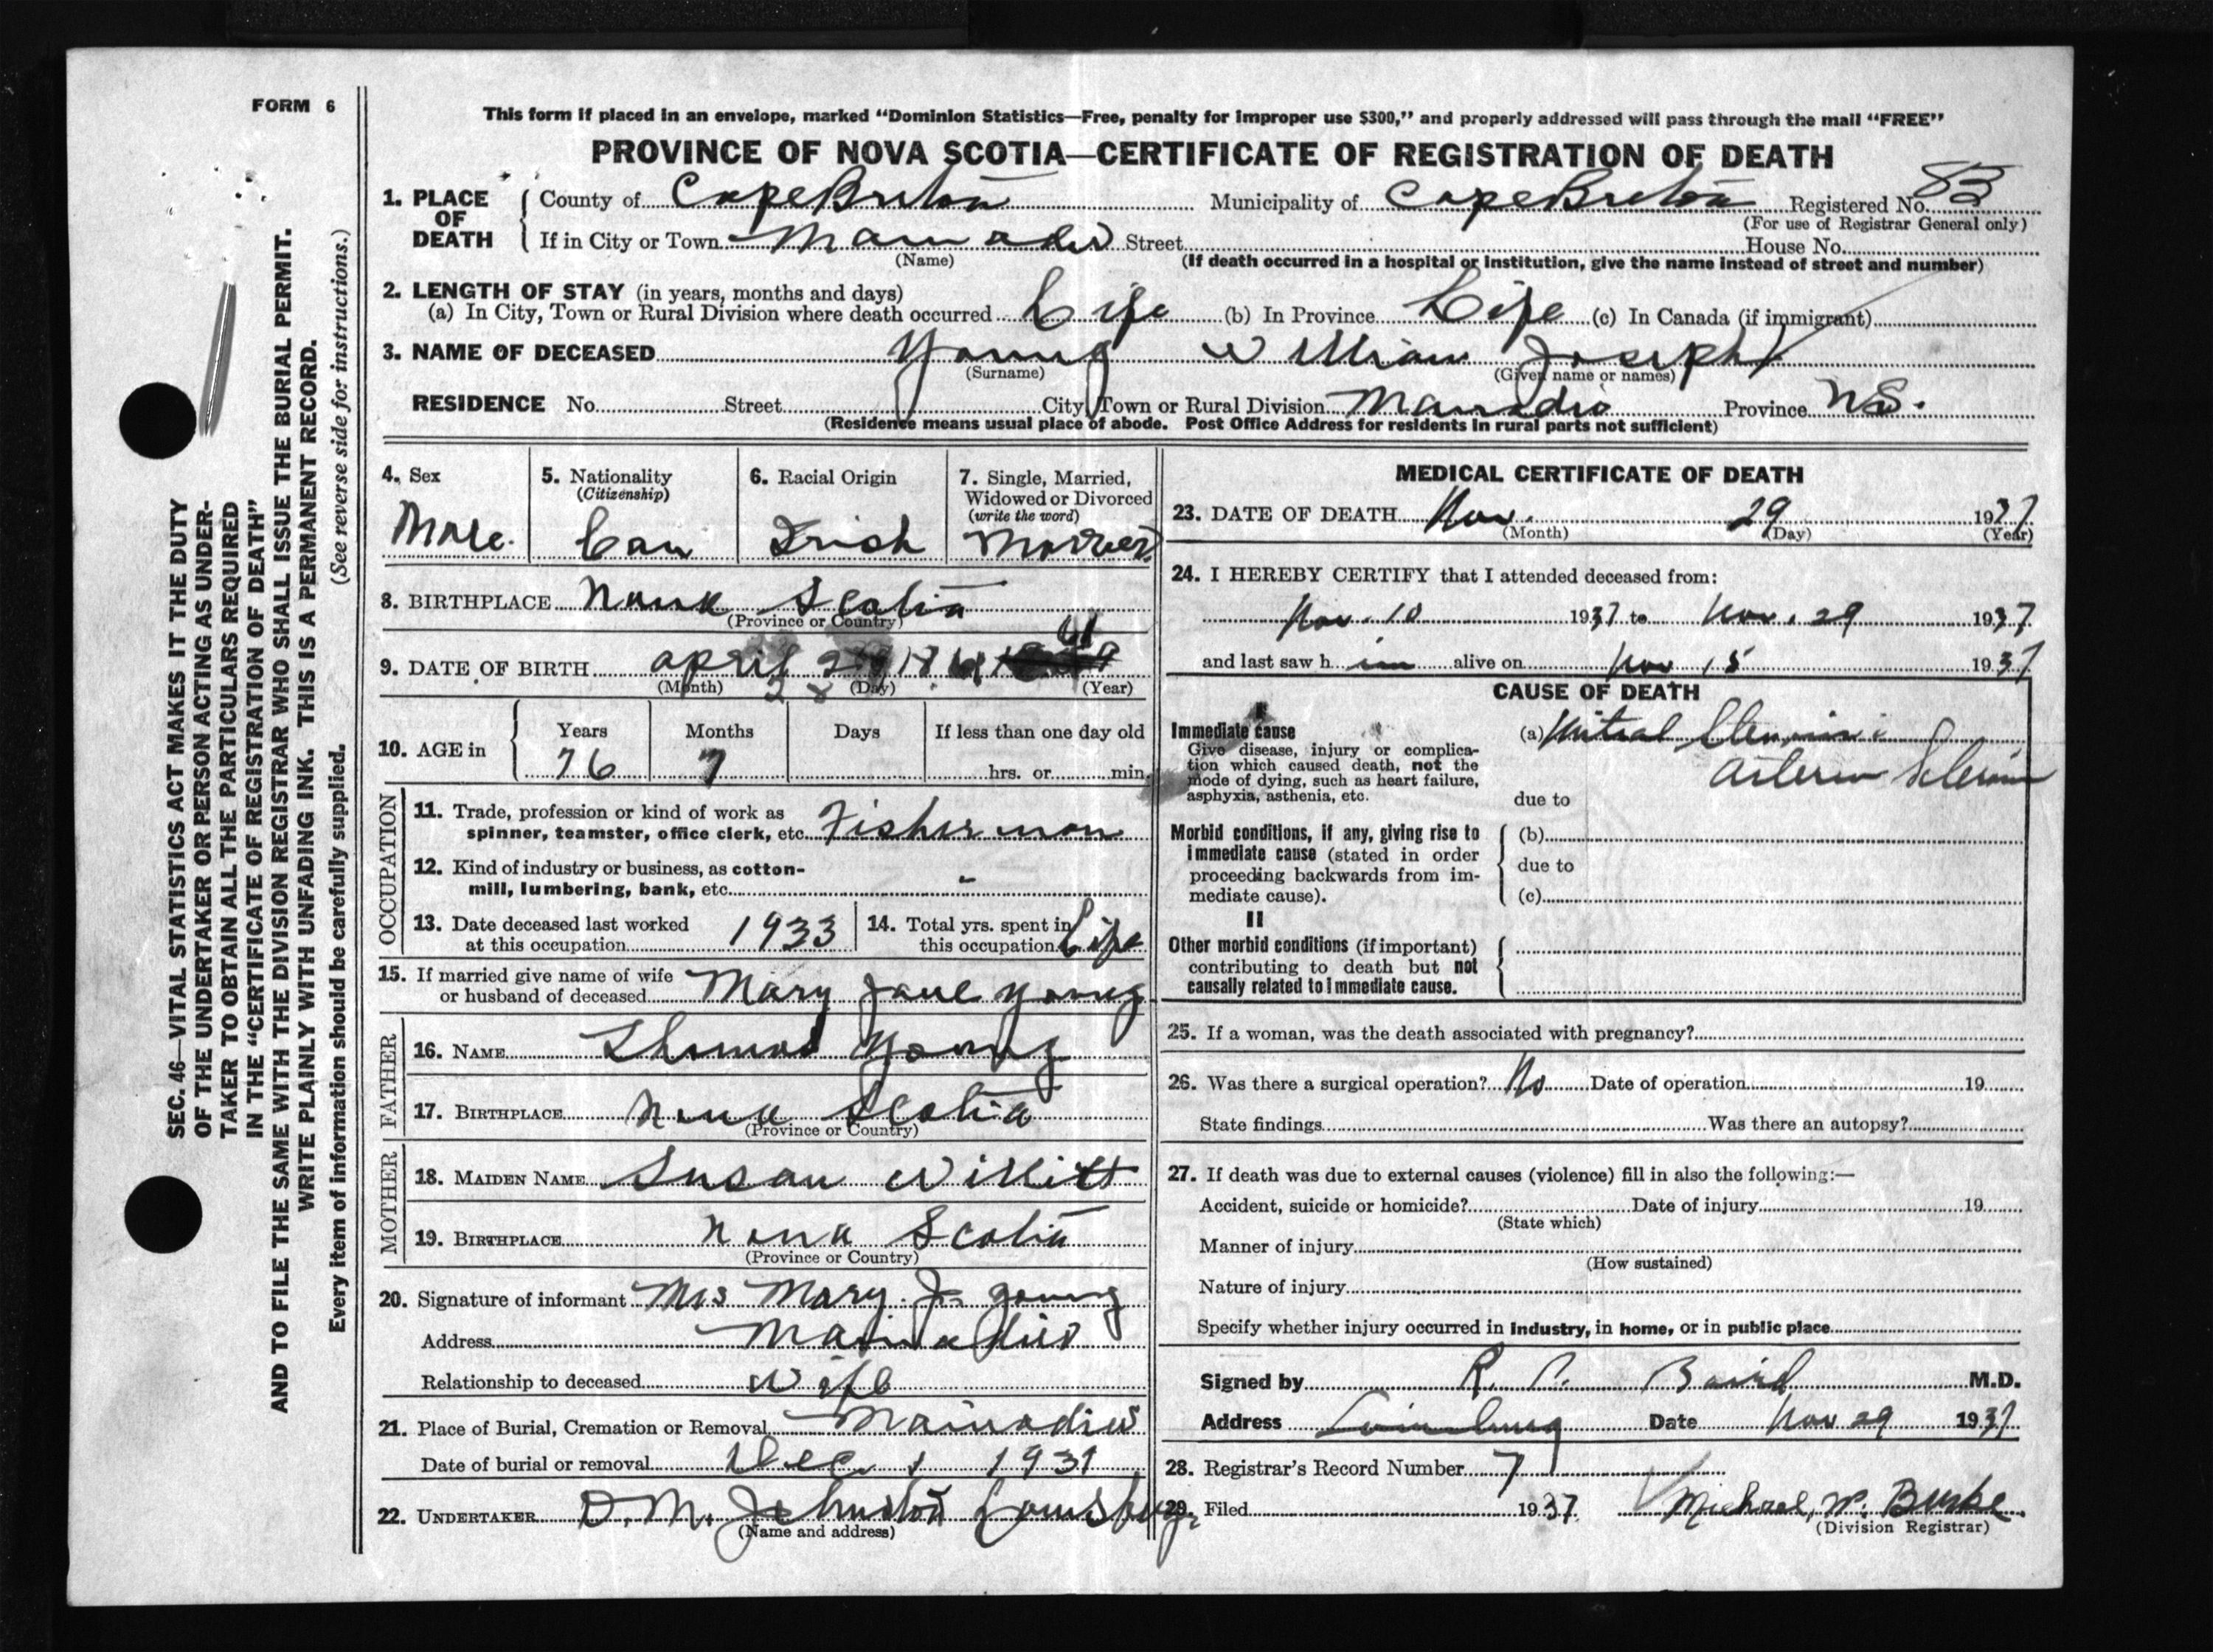 FORM 6
This form if placed in an envelope, marked "Dominion Statistics—Free, penalty for improper use $300," and properly addressed will pass through the mail "FREE"
PROVINCE OF NOVA SCOTIA—CERTIFICATE OF REGISTRATION OF DEATH
1. PLACE OF DEATH County of Cape Breton Municipality of Cape Breton Registered No. 83
(For use of Registrar General only)
If in City or Town Mainadieu Street House No.
(Name) (If death occurred in a hospital or institution, give the name instead of street and number)
2. LENGTH OF STAY (in years, months and days)
(a) In City, Town or Rural Division where death occurred Life (b) In Province Life (c) In Canada (if immigrant)
3. NAME OF DECEASED Young William Joseph
(Surname) (Given name or names)
RESIDENCE No. Street City, Town or Rural Division Mainadieu Province N.S.
(Residence means usual place of abode. Post Office Address for residents in rural parts not sufficient)
4. Sex Male.
5. Nationality (Citizenship) Can
6. Racial Origin Irish
7. Single, Married, Widowed or Divorced (write the word) Married
8. BIRTHPLACE Nova Scotia
(Province or Country)
9. DATE OF BIRTH April 1861 61
(Month) 28 (Day) (Year)
10. AGE in Years 76 Months 7 Days If less than one day old hrs. or min.
OCCUPATION
11. Trade, profession or kind of work as spinner, teamster, office clerk, etc. Fisherman
12. Kind of industry or business, as cotton-mill, lumbering, bank, etc. -
13. Date deceased last worked at this occupation 1933
14. Total yrs. spent in this occupation Life
15. If married give name of wife or husband of deceased Mary Jane Young
FATHER
16. NAME Thomas Young
17. BIRTHPLACE Nova Scotia
(Province or Country)
MOTHER
18. MAIDEN NAME Susan Willitt
19. BIRTHPLACE Nova Scotia
(Province or Country)
20. Signature of informant Mrs Mary J. Young
Address Mainadieu
Relationship to deceased Wife
21. Place of Burial, Cremation or Removal Mainadieu
Date of burial or removal Dec 1 1937
22. UNDERTAKER D. M. Johnston Louisburg
(Name and address)
MEDICAL CERTIFICATE OF DEATH
23. DATE OF DEATH Nov. 29 1937
(Month) (Day) (Year)
24. I HEREBY CERTIFY that I attended deceased from:
Nov. 10 1937 to Nov. 29 1937
and last saw him alive on Nov 15 1937
CAUSE OF DEATH
I
Immediate cause (a) Mitral Stenosis
Give disease, injury or complication which caused death, not the mode of dying, such as heart failure, asphyxia, asthenia, etc.
Arterio Sclerosis
due to
Morbid conditions, if any, giving rise to immediate cause (stated in order proceeding backwards from immediate cause).
(b)
due to
(c)
II
Other morbid conditions (if important) contributing to death but not causally related to immediate cause.
25. If a woman, was the death associated with pregnancy?
26. Was there a surgical operation? No Date of operation 19
State findings Was there an autopsy?
27. If death was due to external causes (violence) fill in also the following:—
Accident, suicide or homicide? Date of injury 19
(State which)
Manner of injury
(How sustained)
Nature of injury
Specify whether injury occurred in industry, in home, or in public place
Signed by Baird M.D.
Address Louisburg Date Nov 29 1937
28. Registrar's Record Number 7
29. Filed 1937 Michael W. Burke
(Division Registrar)
SEC. 46—VITAL STATISTICS ACT MAKES IT THE DUTY
OF THE UNDERTAKER OR PERSON ACTING AS UNDER-
TAKER TO OBTAIN ALL THE PARTICULARS REQUIRED
IN THE "CERTIFICATE OF REGISTRATION OF DEATH"
AND TO FILE THE SAME WITH THE DIVISION REGISTRAR WHO SHALL ISSUE THE BURIAL PERMIT.
WRITE PLAINLY WITH UNFADING INK. THIS IS A PERMANENT RECORD.
Every item of information should be carefully supplied. (See reverse side for instructions.)